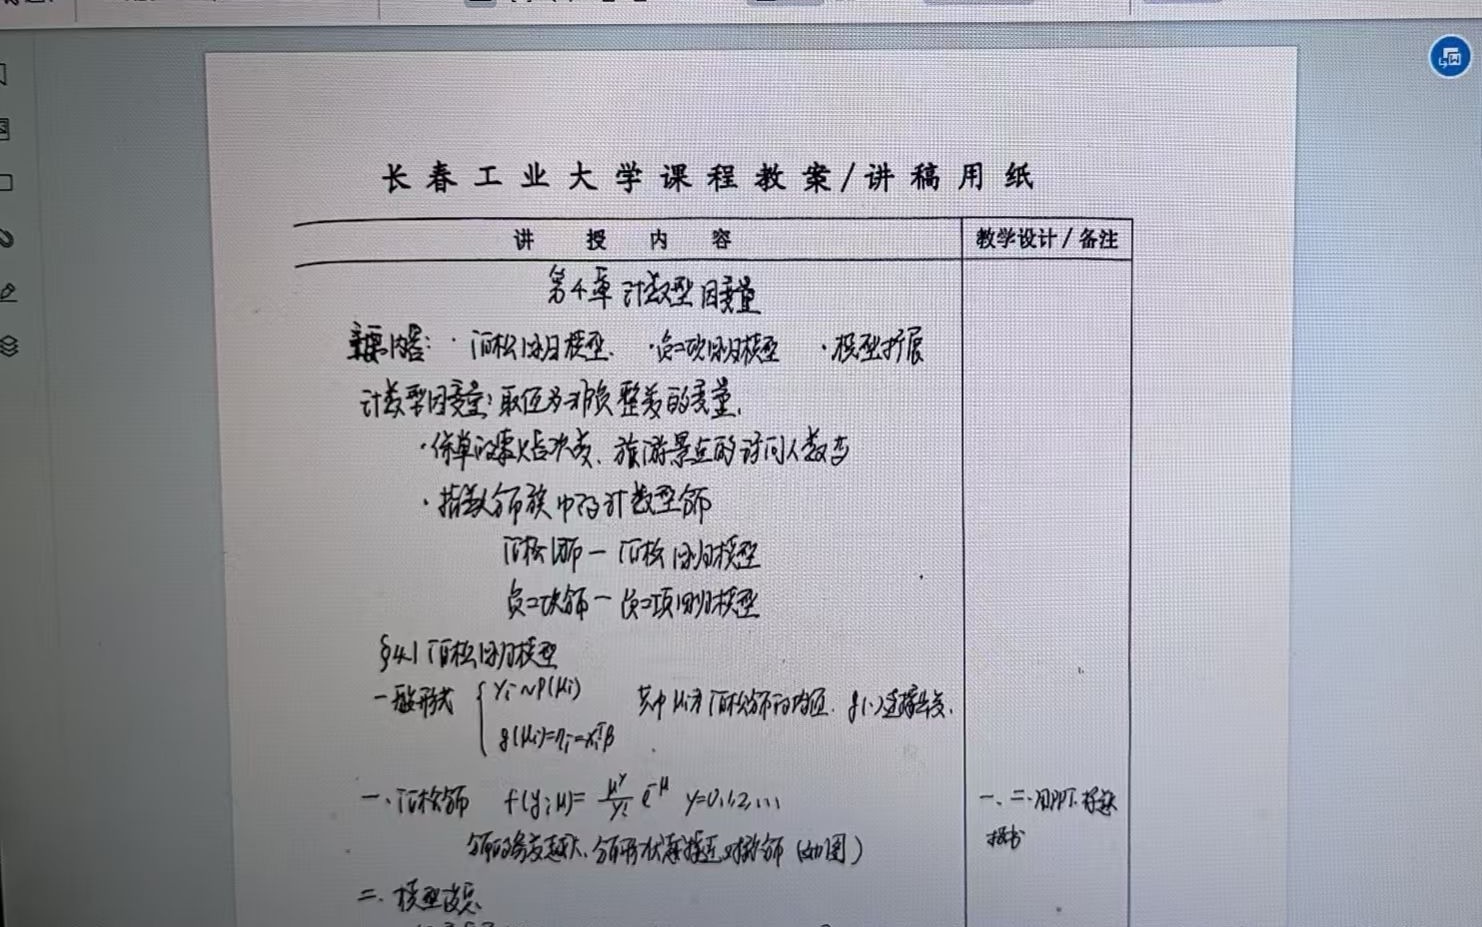 长春工业大学课程教案/讲稿用纸
讲 授 内 容
教学设计/备注
第4章 计数型因变量
主要内容: ·泊松回归模型. ·负二项回归模型 ·模型扩展
计数型因变量: 取值为非负整数的变量.
·保单的索赔次数、旅游景点的访问人数等
·指数分布族中的计数型分布
泊松分布 — 泊松回归模型
负二项分布 — 负二项回归模型
§4.1 泊松回归模型
一般形式 { yi ~ P(μi) 其中 μi为泊松分布的均值. g(·)连接函数.
g(μi)=ηi=xiᵀβ
一. 泊松分布 f(y;μ)= μ^y/y! e^-μ y=0,1,2,...
一、二.用PPT.
板书
分布的参数越大、分布形状越接近对称分布 (如图)
二. 模型设定